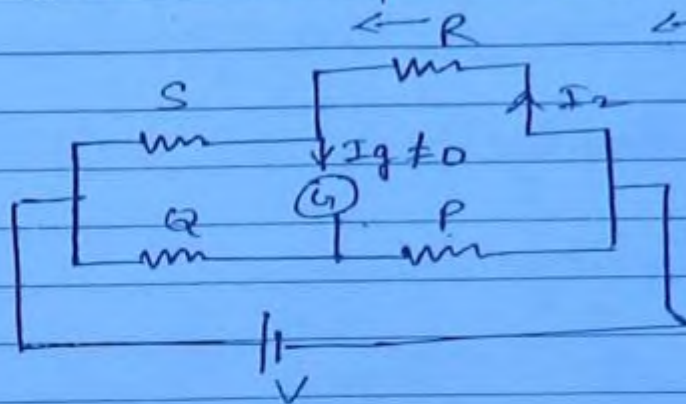 ← R ←
S I₂
↓ Ig ≠ 0
G
Q P
V